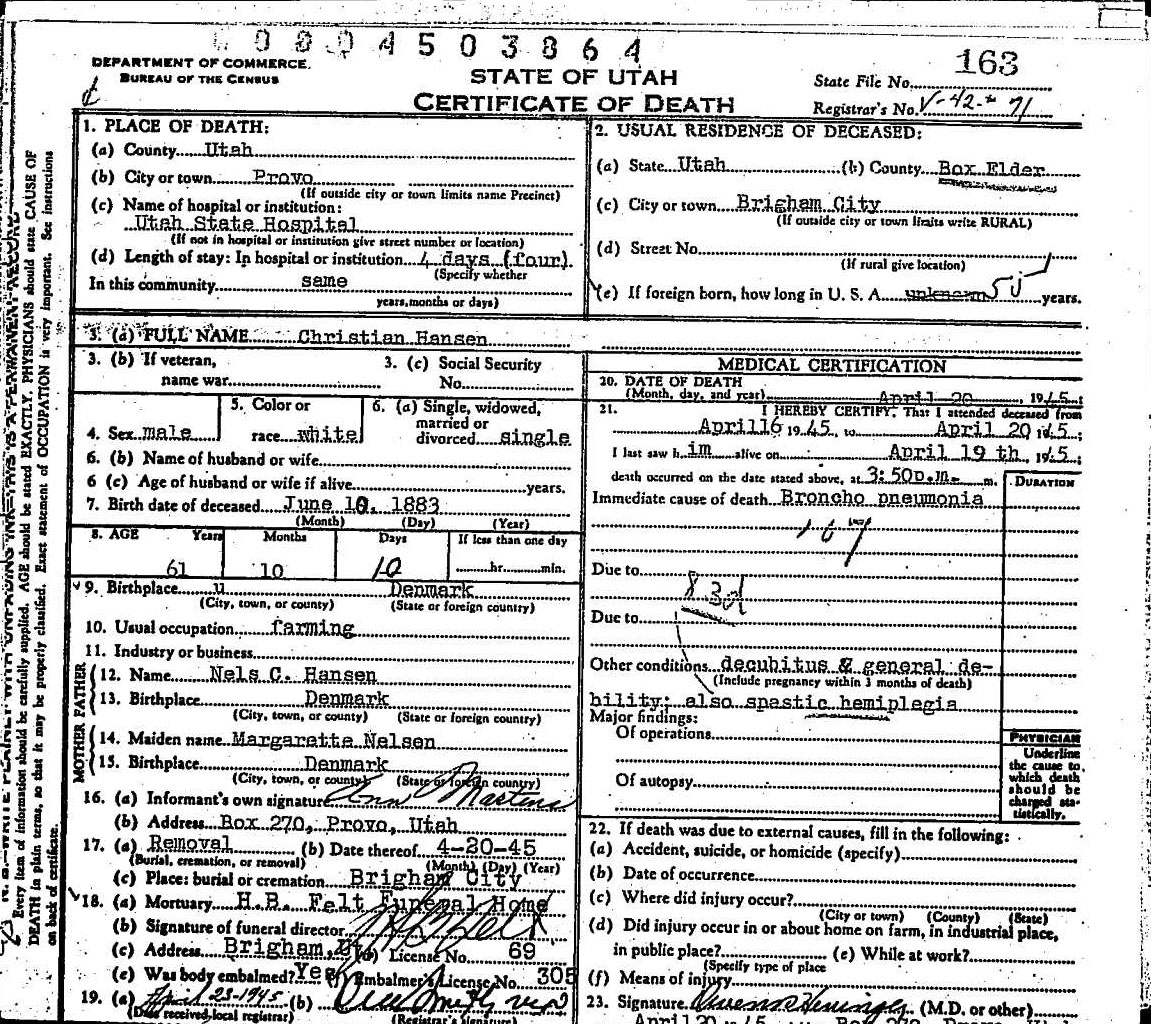 0 8 0 4 5 0 3 8 6 4
DEPARTMENT OF COMMERCE
BUREAU OF THE CENSUS
STATE OF UTAH
CERTIFICATE OF DEATH
State File No. 163
Registrar's No. V-42- 71
1. PLACE OF DEATH:
(a) County Utah
(b) City or town Provo
(If outside city or town limits name Precinct)
(c) Name of hospital or institution:
Utah State Hospital
(If not in hospital or institution give street number or location)
(d) Length of stay: In hospital or institution 4 days (four)
(Specify whether
In this community same
years, months or days)
2. USUAL RESIDENCE OF DECEASED:
(a) State Utah (b) County Box Elder
(c) City or town Brigham City
(If outside city or town limits write RURAL)
(d) Street No.
(If rural give location)
(e) If foreign born, how long in U. S. A. unknown years.
3. (a) FULL NAME Christian Hansen
3. (b) If veteran,
name war
3. (c) Social Security
No.
4. Sex male
5. Color or
race white
6. (a) Single, widowed,
married or
divorced single
6. (b) Name of husband or wife
6 (c) Age of husband or wife if alive years.
7. Birth date of deceased June 10, 1883
(Month) (Day) (Year)
8. AGE Years Months Days If less than one day
61 10 10 hr. min.
9. Birthplace u Denmark
(City, town, or county) (State or foreign country)
10. Usual occupation farming
11. Industry or business
FATHER
12. Name Nels C. Hansen
13. Birthplace Denmark
(City, town, or county) (State or foreign country)
MOTHER
14. Maiden name Margarette Nelsen
15. Birthplace Denmark
(City, town, or county) (State or foreign country)
16. (a) Informant's own signature
(b) Address Box 270, Provo, Utah
17. (a) Removal (b) Date thereof 4-20-45
(Burial, cremation, or removal) (Month) (Day) (Year)
(c) Place: burial or cremation Brigham City
18. (a) Mortuary H.B. Felt Funeral Home
(b) Signature of funeral director
(c) Address Brigham, Ut (d) License No. 69
(e) Was body embalmed? Yes (f) Embalmer's License No. 305
19. (a) April 23-1945 (b)
(Date received local registrar) (Registrar's Signature)
MEDICAL CERTIFICATION
20. DATE OF DEATH
(Month, day, and year) April 20, 1945;
21. I HEREBY CERTIFY, That I attended deceased from
April 16 1945, to April 20 1945;
I last saw him alive on April 19 th, 1945;
death occurred on the date stated above, at 3:50 p.m. m.
DURATION
Immediate cause of death Broncho pneumonia
107
Due to
83d
Due to
Other conditions decubitus & general de-
(Include pregnancy within 3 months of death)
bility; also spastic hemiplegia
Major findings:
Of operations
Of autopsy
PHYSICIAN
Underline
the cause to
which death
should be
charged sta-
tistically.
22. If death was due to external causes, fill in the following:
(a) Accident, suicide, or homicide (specify)
(b) Date of occurrence
(c) Where did injury occur?
(City or town) (County) (State)
(d) Did injury occur in or about home on farm, in industrial place,
in public place? (e) While at work?
(Specify type of place
(f) Means of injury
23. Signature (M.D. or other)
April 20 45 Box 270
Every item of information should be carefully supplied. AGE should be stated EXACTLY. PHYSICIANS should state CAUSE OF
DEATH in plain terms, so that it may be properly classified. Exact statement of OCCUPATION is very important. See instructions
on back of certificate.